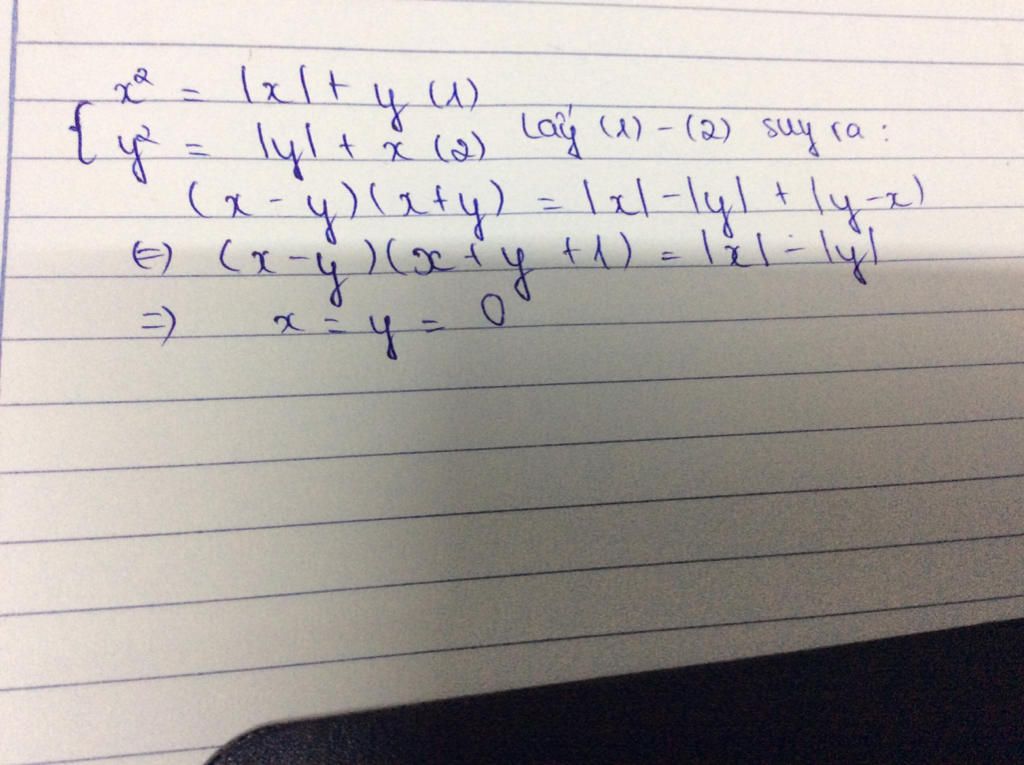 x² = |x| + y (1)
{ y² = |y| + x (2) Lấy (1) - (2) suy ra :
(x - y)(x + y) = |x| - |y| + |y - x)
(=) (x - y)(x + y + 1) = |x| - |y|
=) x = y = 0